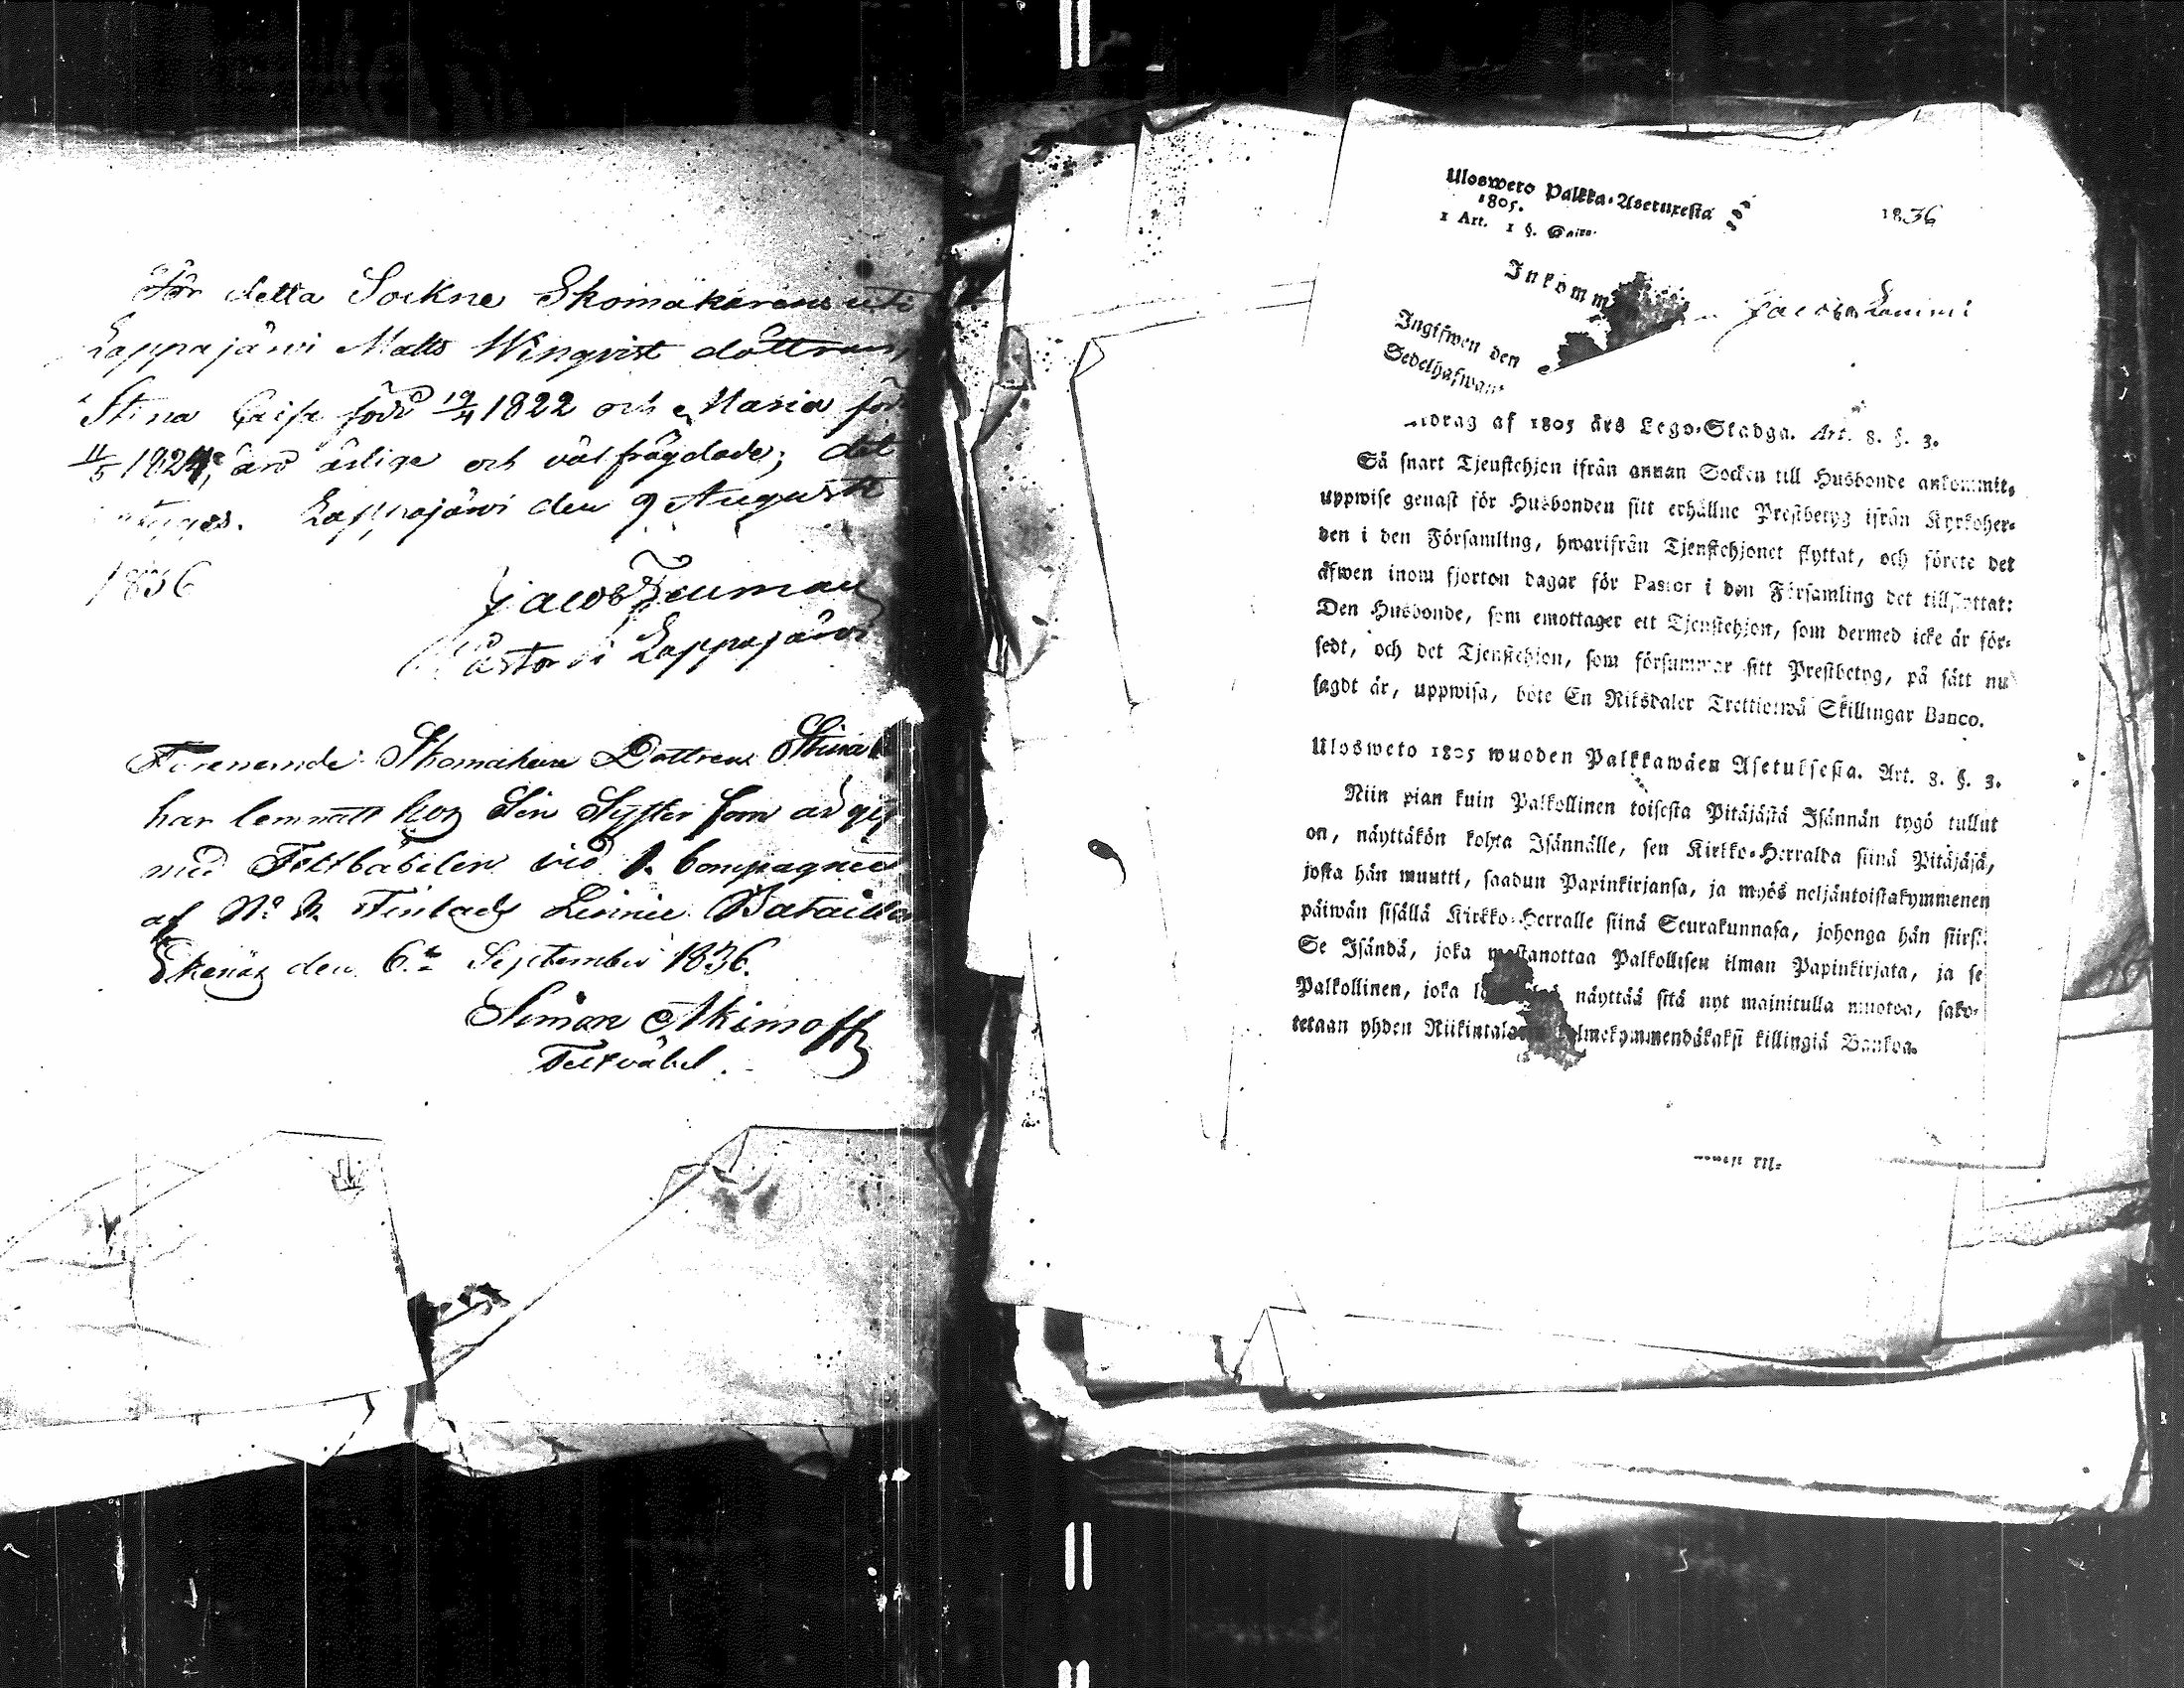 För detta Sockne Skomakarens uti
Lappajärvi Matts Winqvist döttrar,
Stina Caisa född 19/4 1822 och Maria föd
11/5 1824, äro ärlige och välfrägdade; det
Lappajärvi den 9 Augusti
1836
Jacob
Pastor i Lappajärvi
Förenemde Skomakare Dottren Stina
har lemnatt hoz Sin Syster som är gif
med Feltbäbelen vid 1. Compagnie
af No Finlads Linnie Batailion
Ekenäs den 6te September 1836.
Simon Akimoff
Feltväbel.
Uloswero Palkka-Asetuxesta
1805.
1 Art. 1 §.
1836
Inkomm
Jacob
Ingifwen den
Sedelhafwan
drag af 1805 års Lego-Stadga. Art. 8. §. 3.
Så snart Tjenstehjon ifrån annan Socken till Husbonde ankommit,
uppwise genast för Husbonden sitt erhållne Prestbetyg ifrån Kyrkoher-
den i den Församling, hwarifrån Tjenstehjonet flyttat, och förete det
äfwen inom fjorton dagar för Pastor i den Församling det tillflyttat:
Den Husbonde, som emottager ett Tjenstehjon, som dermed icke är för-
sedt, och det Tjenstehjon, som försummar sitt Prestbetyg, på sätt nu
sagdt är, uppwisa, böte En Riksdaler Trettiotwå Skillingar Banco.
Ulosweto 1805 wuoden Palkkawäen Asetuksesta. Art. 8. §. 3.
Niin pian kuin Palkollinen toisesta Pitäjästä Isännän tygö tullut
on, näyttäkön kohta Isännälle, sen Kirkko-Herralda siinä Pitäjäsä,
josta hän muutti, saadun Papinkirjansa, ja myös neljäntoistakymmenen
päiwän sisällä Kirkko-Herralle siinä Seurakunnasa, johonga hän siirsi.
Se Isändä, joka wastanottaa Palkollisen ilman Papinkirjata, ja se
Palkollinen, joka näyttää sitä nyt mainitulla muotoa, sako-
tetaan yhden Riikintala lmekymmendäkaksi killingiä Bankoa.